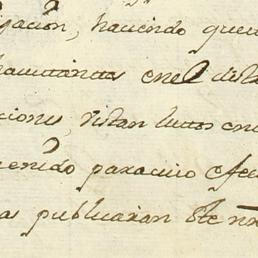 gacion, haciendo que
havitantes en el dist
ciones, vistan lutos en
venido para cuio efec
as publicaran este n